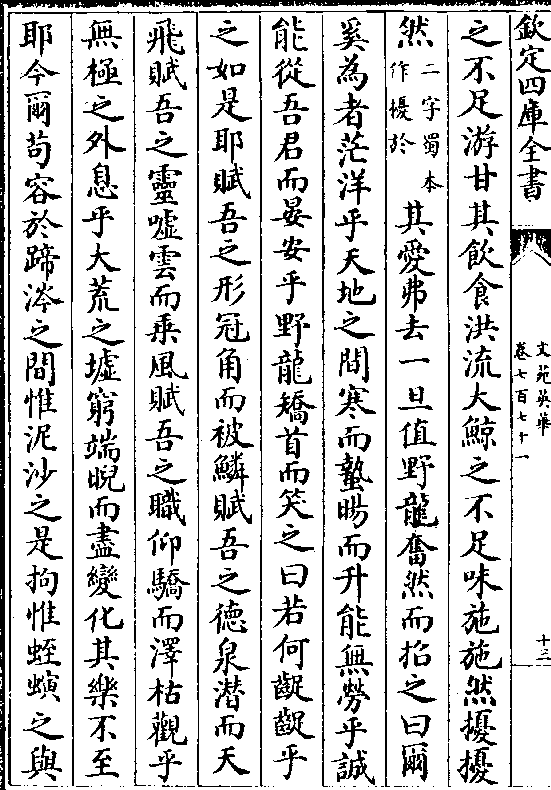 欽定四庫全書
文苑英華
卷七百七十一
十三
之不足游甘其飲食洪流大鯨之不足味施施然擾擾
然二字蜀本作擾於其愛弗去一旦值野龍奮然而招之曰爾
奚為者茫洋乎天地之間寒而蟄暘而升能無勞乎誠
能從吾君而晏安乎野龍矯首而笑之曰若何齪齪乎
之如是耶賦吾之形冠角而被鱗賦吾之德泉潛而天
飛賦吾之靈噓雲而乘風賦吾之職仰驕而澤枯觀乎
無極之外息乎大荒之墟窮端睨而盡變化其樂不至
耶今爾苟容於蹄涔之間惟泥沙之是拘惟蛭螾之與